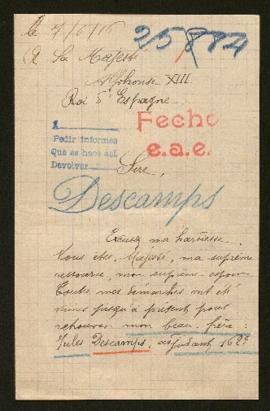 le 7/6/16
25884
A Sa Majesté
Alphonse XIII
Roi d'Espagne.
Fecho
e.a.e.
A
Pedir informes
Que se hace así
Devolver
Sire,
Descamps
Excusez ma hardiesse.
Vous êtes, Majesté, ma suprême
ressource, mon suprême espoir
Toutes mes démarches ont été
vaines jusqu'à présent pour
retrouver mon beau-frère :
Jules Descamps, adjudant 162e